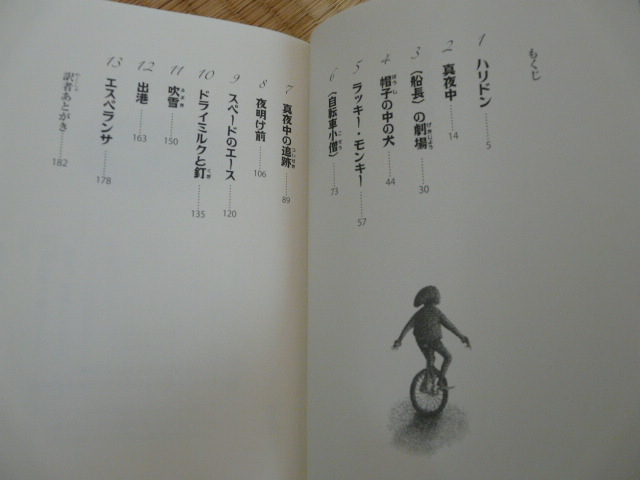 もくじ
1 ハリドン……5
2 真夜中……14
3 〈船長〉の劇場……30
4 帽子の中の犬……44
5 ラッキー・モンキー……57
6 〈自転車小僧〉……73
7 真夜中の追跡……89
8 夜明け前……106
9 スペードのエース……120
10 ドライミルクと釘……135
11 吹雪……150
12 出港……163
13 エスペランサ……178
訳者あとがき……182